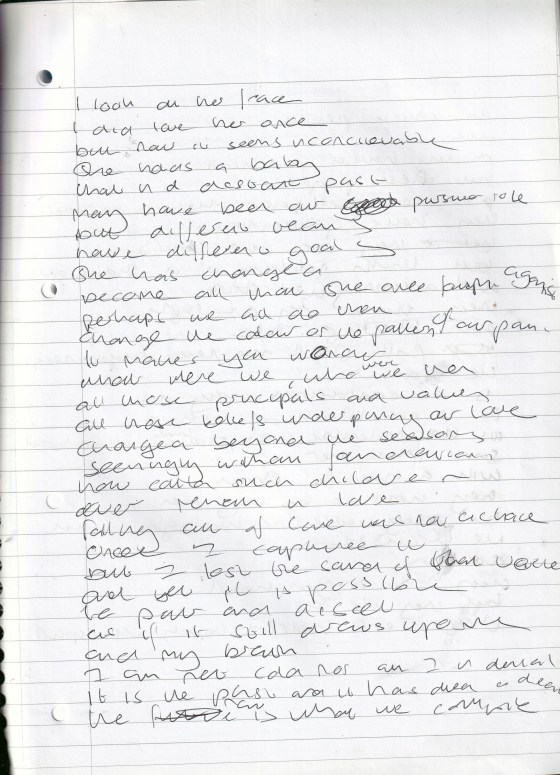 I look on her face
I did love her once
but now it seems inconcievable
She holds a baby
that in a distant past
may have been our pursued role
but different dreams
have different goals
She has changed
become all that she once fought against
perhaps we all do then
change the colour or the pattern of our
It makes you wonder
what were we, who were we then
all those principals and values
all those beliefs underpinning our love
changed beyond the seasons
seemingly without foundation
how could such children
ever remain in love
falling out of love was not a choice
once I captured it
but I lost the sand of
and yet it is possible
to and
as if it still draws upon me
and my brain
I am not cold nor am I in denial
It is the past and it has died a death
the is what we compute